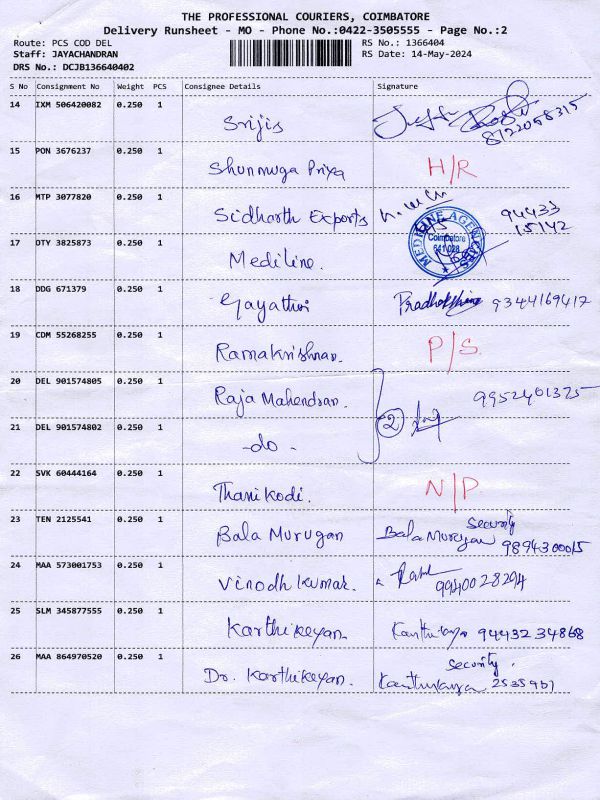 THE PROFESSIONAL COURIERS, COIMBATORE
Delivery Runsheet - MO - Phone No.:0422-3505555 - Page No.:2
Route: PCS COD DEL RS No.: 1366404
Staff: JAYACHANDRAN RS Date: 14-May-2024
DRS No.: DCJB136640402
S No Consignment No Weight PCS Consignee Details Signature
14 IXM 506420082 0.250 1 Srijis 8122058315
15 PON 3676237 0.250 1 Shunmuga Priya H/R
16 MTP 3077820 0.250 1 Sidharth Exports 94433
15142
17 OTY 3825873 0.250 1 Mediline.
MEDILINE AGENCIES
Coimbatore
641 028
18 DDG 671379 0.250 1 Gayathri 9344169417
19 CDM 55268255 0.250 1 Ramakrishnan. P/S.
20 DEL 901574805 0.250 1 Raja Mahendran. 9952401325
21 DEL 901574802 0.250 1 -do - 2
22 SVK 60444164 0.250 1 Thanikodi. N/P
23 TEN 2125541 0.250 1 Bala Murugan Bala Murugan Security 9894300015
24 MAA 573001753 0.250 1 Vinodh Kumar. 9940028294
25 SLM 345877555 0.250 1 Karthikeyan. 94432 34868
26 MAA 864970520 0.250 1 Dr. Karthikeyan. Security. 2535901